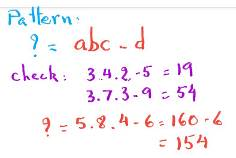 Pattern:
? = abc - d
check: 3.4.2 - 5 = 19
3.7.3 - 9 = 54
? = 5.8.4 - 6 = 160 - 6
= 154